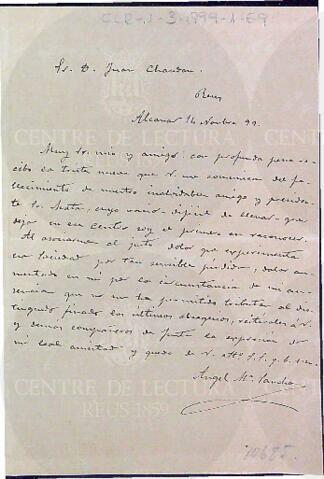 CLR-1-3-1899-1-E9
Sr. D. Juan
Reus
Alcanar 14 Novbre 99.
Muy Sr. mio y amigo: con profunda pena re-
cibo la triste nueva que V. me comunica del fa-
llecimiento de nuestro inolvidable amigo y presiden-
te Sr. cuyo vacio dificil de llenar que
deja en ese Centro soy el primero en reconocer.
Al asociarme al justo dolor que experimenta
esa Sociedad por tan sensible pérdida, dolor au-
mentado en mi por la circunstancia de mi au-
sencia que no me ha permitido tributar al dis-
tinguido finado los últimos obsequios, reitérole á V.
y demás compañeros de Junta la expresion de
mi leal amistad y quedo de V. atto. S. S. q. b. s. m.
Angel Mª
10685.
CENTRE DE LECTURA
CENTRE DE LECTURA
REUS·1859